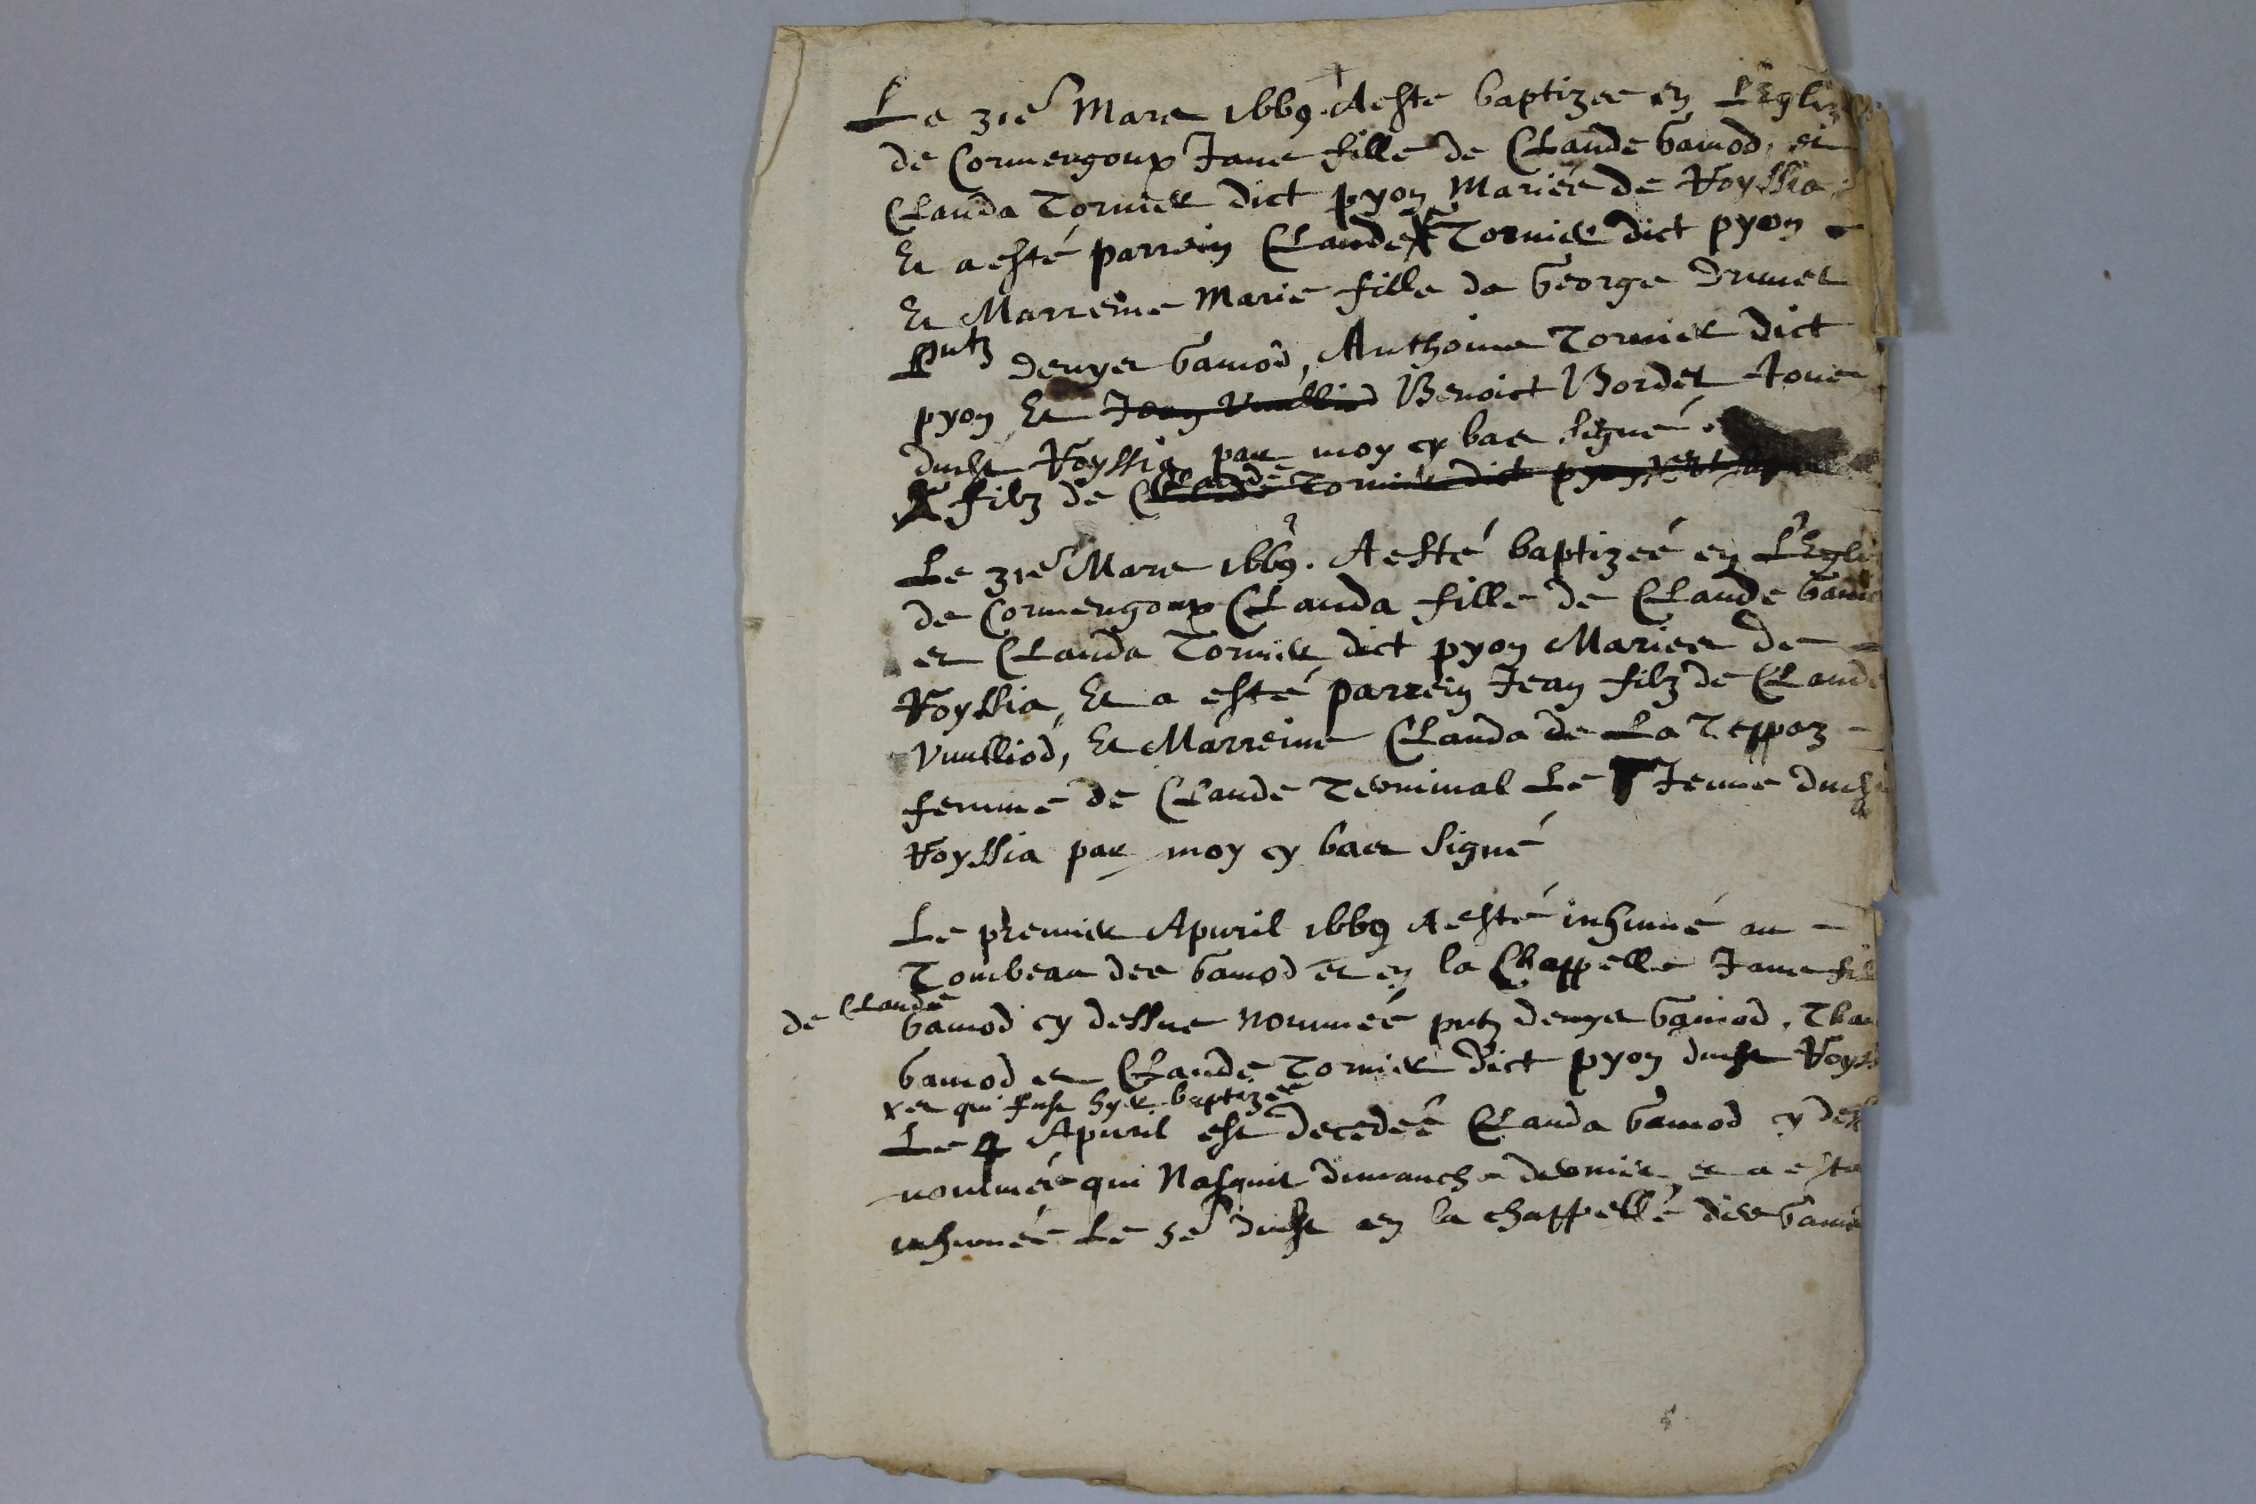 Le 31e Mars 1669. A este baptizee en L'Egliz
de Cormengoux Jane fille de Claude Gamod, et
Clauda Tornier dict pyon Mariés de Royssia
Et a esté parrein Claude X Tornier dict pyon
Et Marreine Marie fille de George
pntz denys Gamod, Anthoine Tornier dict
pyon Et Jean Vuilliod Benoict Bordet Tous
dudt Royssia par moy cy bas signé
X filz de Claude Tornier dict pyon
Le 31e Mars 1669. A esté baptizeé en L'Egli
de Cormengoux Clauda fille de Claude Gamo
et Clauda Tornier dict pyon Maries de
Royssia, Et a esté parrein Jean filz de Claude
Vuilliod, Et Marreine Clauda de La Teppaz
femme de Claude Teurninal Le Jeune dudt
Royssia par moy cy bas signé
Le premier Apuril 1669 A esté inhumé au
Tombeau des Gamod et en la Chappelle Jane fil
de Claude
Gamod cy dessus nommeé pntz denys Gamod,
Gamod et Claude Tornier dict pyon dudt Royss
x et qui fust hyer baptizee
Le 4 Apuril est decedeé Clauda Gamod cy dess
nommeé qui Nasquit dimanche dernier et a este
inhumeé Le 5e dudt en la chappelle des Gamo